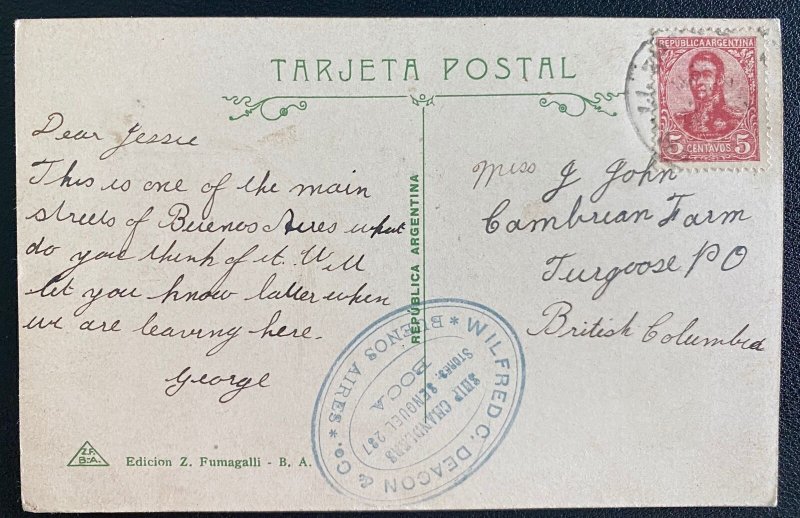 TARJETA POSTAL
REPÚBLICA ARGENTINA
5 CENTAVOS 5
Dear Jessie
This is one of the main
streets of Buenos Aires what
do you think of it. Will
let you know latter when
we are leaving here.
George
REPÚBLICA ARGENTINA
Miss J John
Cambrian Farm
Turgoose PO
British Columbia
WILFRED C. DEACON & Co.
* BUENOS AIRES *
SHIP CHANDLERS
STORES: SENGUEL 287
BOCA
Z.F.
B-A.
Edicion Z. Fumagalli - B. A.